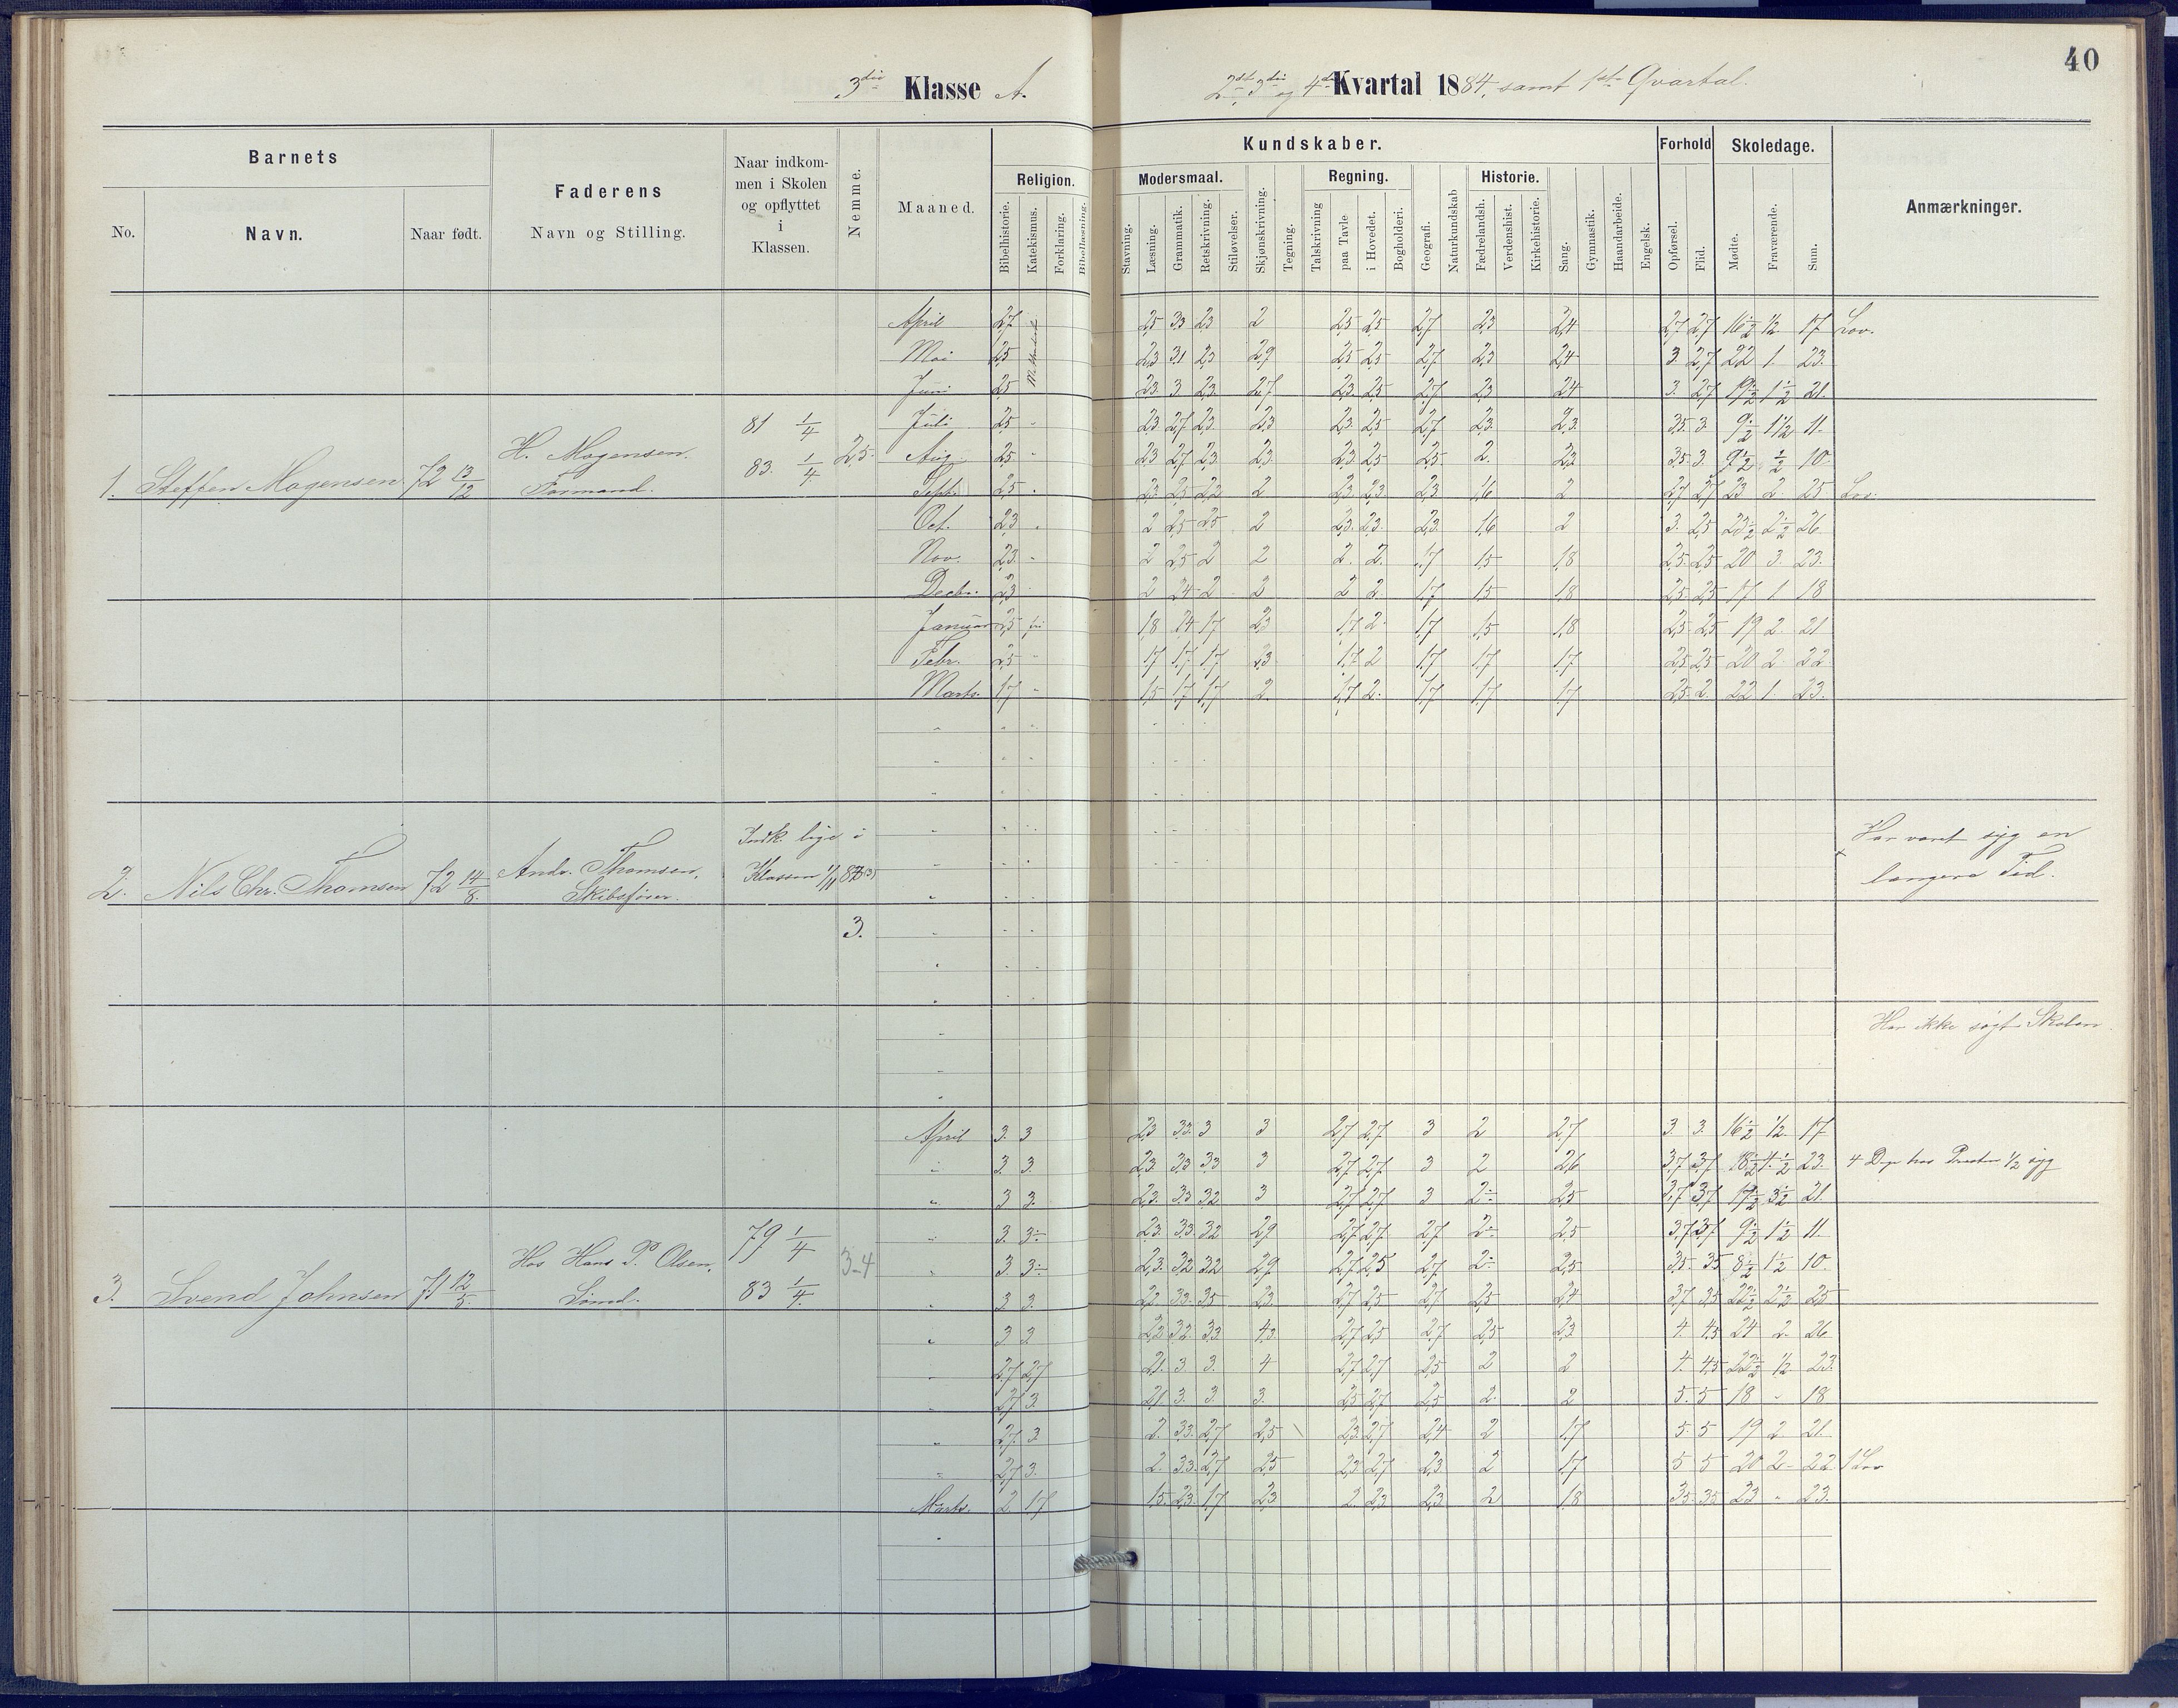 40
3die Klasse A.
2det, 3die og 4de Kvartal 1884, samt 1ste Qvartal.
Barnets
No.
Navn.
Naar født.
Faderens
Navn og Stilling.
Naar indkom-
men i Skolen
og opflyttet
i
Klassen.
Nemme.
Maaned.
Kundskaber.
Religion.
Bibelhistorie.
Katekismus.
Forklaring.
Bibellæsning.
Modersmaal.
Stavning.
Læsning.
Grammatik.
Retskrivning.
Stiløvelser.
Skjønskrivning.
Tegning.
Regning.
Talskrivning
paa Tavle
i Hovedet.
Bogholderi.
Geografi.
Naturkundskab
Historie.
Fædrelandsh.
Verdenshist.
Kirkehistorie.
Sang.
Gymnastik.
Haandarbeide.
Engelsk.
Forhold
Opførsel.
Flid.
Skoledage.
Mødte.
Fraværende.
Sum.
Anmærkninger.
1. Steffen Mogensen 72 13/12 H. Mogensen. Formand. 81 1/4 83. 1/4 2,5.
April 2,7 2,5 3,3 2,3 2 2,5 2,5 2,7 2,3 2,4 2,7 2,7 16 1/2 1/2 17 Lov.
Mai 2,5 2,3 3,1 2,3 2,9 2,5 2,5 2,7 2,3 2,4 3. 2,7 22 1. 23.
Juni 2,5 2,3 3 2,3 2,7 2,3 2,5 2,7 2,3 2,4 3. 2,7 19 1/2 1 1/2 21.
Juli 2,5 - 2,3 2,7 2,3 2,3 2,3 2,5 2,7 2,3 2,3 3,5 3 9 1/2 1 1/2 11.
Aug. 2,5 - 2,3 2,7 2,3 2,3 2,3 2,5 2,5 2. 2,3 3,5 3. 9 1/2 1/2 10
Sept. 2,5 - 2,3 2,5 2,2 2 2,3 2,3 2,3 1,6 2 2,7 2,7 23 2 25 Lov.
Oct. 2,3 - 2 2,5 2,5 2 2,3 2,3 2,3 1,6 2 3. 2,5 23 1/2 2 1/2 26
Nov. 2,3 - 2 2,5 2 2 2. 2. 1,7 1,5 1,8 2,5 2,5 20 3. 23.
Decbr. 2,3 2 2,4 2 2 2 2 1,7 1,5 1,8 2,5 2,5 17 1 18
Januar 2,5 1,8 2,4 1,7 2,3 1,7 2 1,7 1,5 1,8 2,5 2,5 19 2. 21
Febr. 2,5 - 1,7 1,7 1,7 2,3 1,7 2 1,7 1,7 1,7 2,5 2,5 20 2. 22
Marts 1,7 - 1,5 1,7 1,7 2 1,7 2. 1,7 1,7 1,7 2,5 2. 22 1. 23.
2. Nils Chr. Thomsen 72 14/8. Andr. Thomsen, Skibsfører. Indk. lige i Klassen 1/11 83
3.
Har været syg en
længere Tid.
Har ikke søgt Skolen
3. Svend Johnsen 71 12/5. Hos Hans P. Olsen, 79 1/4 83 1/4. 3-4
April 3. 3 2,3 3,3 3 3 2,7 2,7 3 2 2,7 3. 3. 16 1/2 1/2 17
" 3. 3. 2,3 3,3 3,3 3 2,7 2,7 3 2 2,6 3,7 3,7 18 1/2 4 1/2 23. 4 Dge hos Presten 1/2 syg
" 3 3. 2,3 3,3 3,2 3 2,7 2,7 3 2÷ 2,5 3,7 3,7 17 1/2 3 1/2 21.
" 3. 3÷ 2,3 3,3 3,2 2,9 2,7 2,7 2,7 2÷ 2,5 3,7 3,7 9 1/2 1 1/2 11.
" 3 3÷ 2,3 3,2 3,2 2,9 2,7 2,5 2,7 2÷ 2,5 3,5 3,5 8 1/2 1 1/2 10.
" 3 3. 2,2 3,3 3,5 2,3 2,7 2,5 2,7 2,5 2,4 3,7 3,5 22 1/2 2 1/2 25
" 3 3 2,3 3,2 3,3 4,3 2,7 2,5 2,7 2,5 2,3 4. 4,5 24 2. 26
" 2,7 2,7 2,1 3 3. 4 2,7 2,7 2,5 2 2 4. 4,5 22 1/2 1/2 23.
" 2,7 3. 2,1 3. 3. 3. 2,5 2,7 2,5 2. 2 5. 5 18 - 18
" 2,7 3 2. 3,3 2,7 2,5 2,3 2,7 2,4 2 1,7 5. 5 19 2. 21.
" 2,7 3. 2. 3,3 2,7 2,5 2,3 2,7 2,3 2 1,7 5 5 20 2- 22 1 Lov
Marts. 2. 1,7 1,5 2,3 1,7 2,3 2. 2,3 2,3 2 1,8 3,5 3,5 23 " 23.